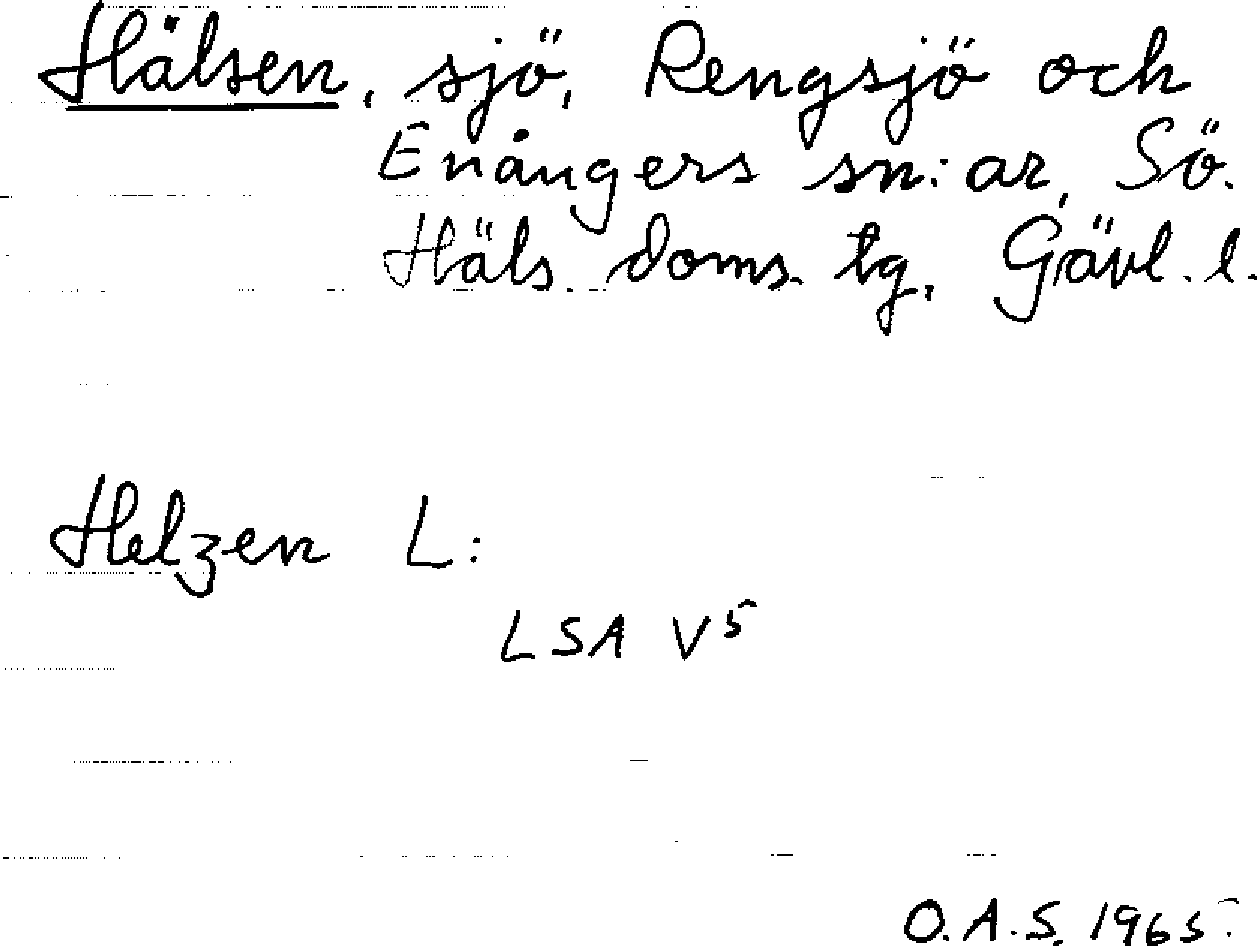 Hälsen, sjö, Rengsjö och
Enångers sn:ar, Sö.
Häls. doms. tg, Gävl. l.
Helzen L:
LSA V5
O.A.S. 1965.